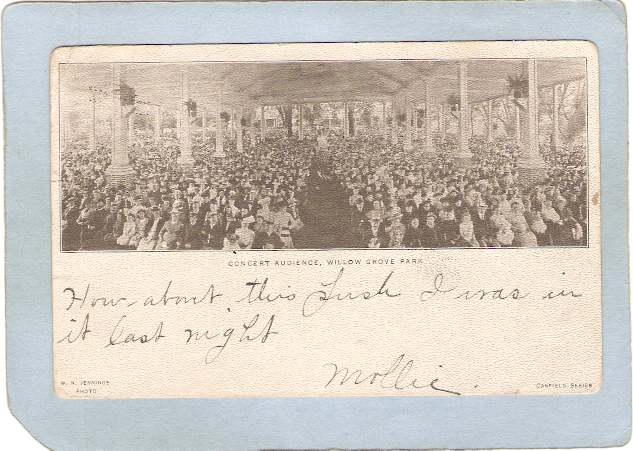 CONCERT AUDIENCE, WILLOW GROVE PARK
How about this Lush I was in
it last night
Mollie.
W. N. JENNINGS
PHOTO
CANFIELD SERIES